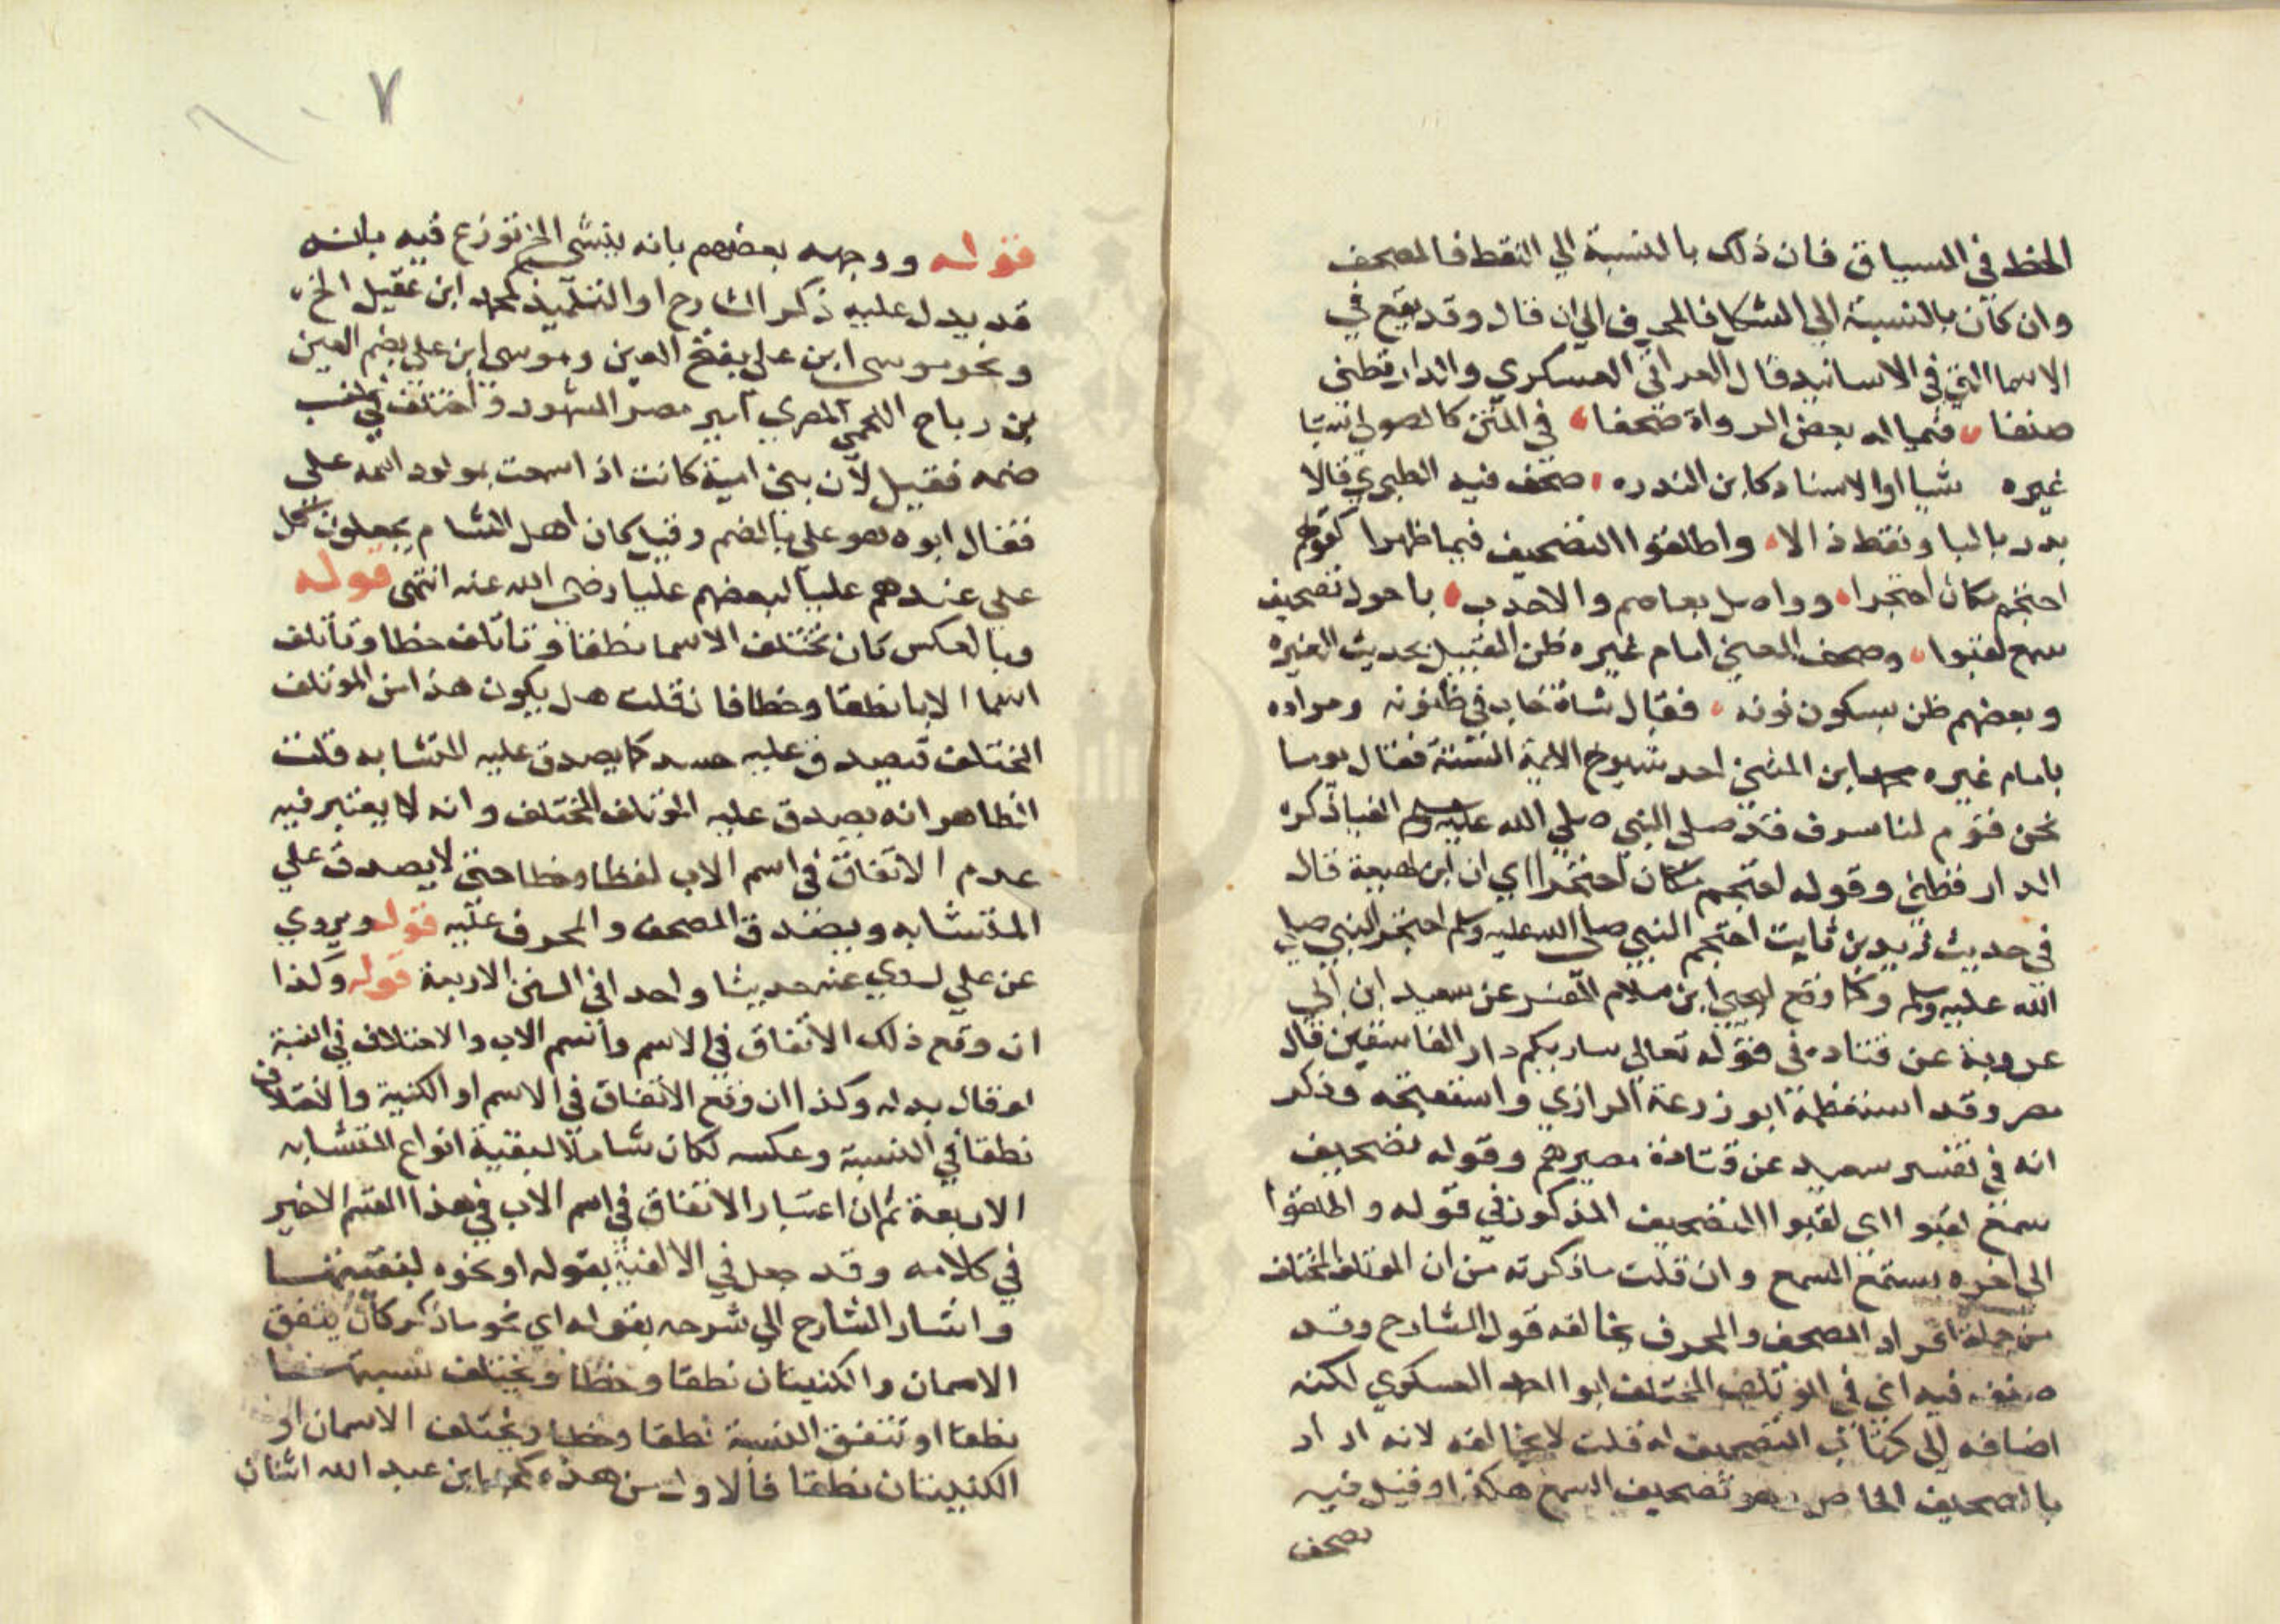 الخط في السياق فان ذلك بالنسبة الي النقط فالمصحف
وان كان بالنسبة الي الشكل فالمحرف الي ان قال وقد يقع في
الاسما التي في الاسانيد قال العراقي العسكري والدارقطني
صنفا فيما له بعض الرواة صحفا في المتن كالصولي ستا
غيره شيا او الاسناد كابن الندره صحف فيه الطبري قالا
بدر بالبا ونقط ذالا واطلقوا التصحيف فيما ظهرا كقولهم
احتجم مكان احتجرا وواصل بعاصم والاحدب باحول تصحيف
سمع لقبوا وصحف المعني امام عنزه ظن القبيل بحديث العنزه
وبعضهم ظن بسكون نونه فقال شاة خاب في ظنونه ومراده
بامام عنزه محمد ابن المثني احد شيوخ الايمة الستة فقال يوما
نحن قوم لنا شرف قد صلي النبي صلي الله عليه وسلم الينا ذكره
الدارقطني وقوله احتجم مكان احتجرا اي ان ابن لهيعة قال
في حديث زيد بن ثابت احتجم النبي صلي الله عليه وسلم احتجر النبي صلي
الله عليه وسلم وكما وقع ليحيي ابن سلام المفسر عن سعيد ابن ابي
عروبة عن قتاده في قوله تعالي ساريكم دار الفاسقين قال
مصر وقد استعظمه ابو زرعة الرازي واستقبحه وذكر
انه في تفسير سعيد عن قتادة مصيرهم وقوله تصحيف
سمع لقبوا اي لقبوا التصحيف المذكور في قوله واطلقوا
الي اخره بسمع السمع وان قلت ما ذكرته من ان المؤتلف المختلف
من جملة افراد المصحف والمحرف يخالفه قول الشارح وقد
صنف فيه اي في المؤتلف المختلف ابو احمد العسكري لكنه
اضافه الي كتاب التصحيف له قلت لا يخالفه لانه اراد
بالتصحيف الخاص وهو تصحيف السمع هكذا وقيل فيه
تصحف
٧
قوله ووجهه بعضهم بانه ينشئ الخ نوزع فيه بانه
قد يدل عليه ذكر الشارح او التلميذ محمد ابن عقيل الخ
ونحو موسي ابن علي بفتح العين وموسي ابن علي بضم العين
بن رباح اللخمي المصري امير مصر المشهور واختلف في سبب
ضمه فقيل لان بني امية كانت اذا سمعت بمولود اسمه علي
فقال ابوه هو علي بالضم وقيل كان اهل الشام يجعلون كل
علي عندهم عليا لبعضهم عليا رضي الله عنه انتهي قوله
وبالعكس كان تختلف الاسما نطقا وتأتلف خطا وتأتلف
اسما الابا نطقا وخطا فان قلت هل يكون هذا من المؤتلف
المختلف فيصدق عليه حده كما يصدق عليه المتشابه قلت
الظاهر انه يصدق عليه المؤتلف المختلف وانه لا يعتبر فيه
عدم الاتفاق في اسم الاب لفظا وخطا حتي لا يصدق علي
المتشابه ويصدق المصحف والمحرف عليه قوله ويروي
عن علي لروي عنه حديثا واحدا في السنن الاربعة قوله وكذا
ان وقع ذلك الاتفاق في الاسم واسم الاب والاختلاف في النسبة
لو قال بدله وكذا ان وقع الاتفاق في الاسم او الكنية والاختلاف
نطقا في النسبة وعكسه لكان شاملا لبقية انواع المتشابه
الاربعة ثم ان اعتبار الاتفاق في اسم الاب في هذا القسم الاخير
في كلامه وقد جعل في الالفية بقوله او نحوه لبقيتها
واشار الشارح الي شرحه بقوله اي نحو ما ذكر كان يتفق
الاسمان والكنيتان نطقا وخطا ويختلف نسبتهما
نطقا او تتفق النسبة نطقا وخطا ويختلف الاسمان او
الكنيتان نطقا فالاول من هذه محمد ابن عبد الله اثنان